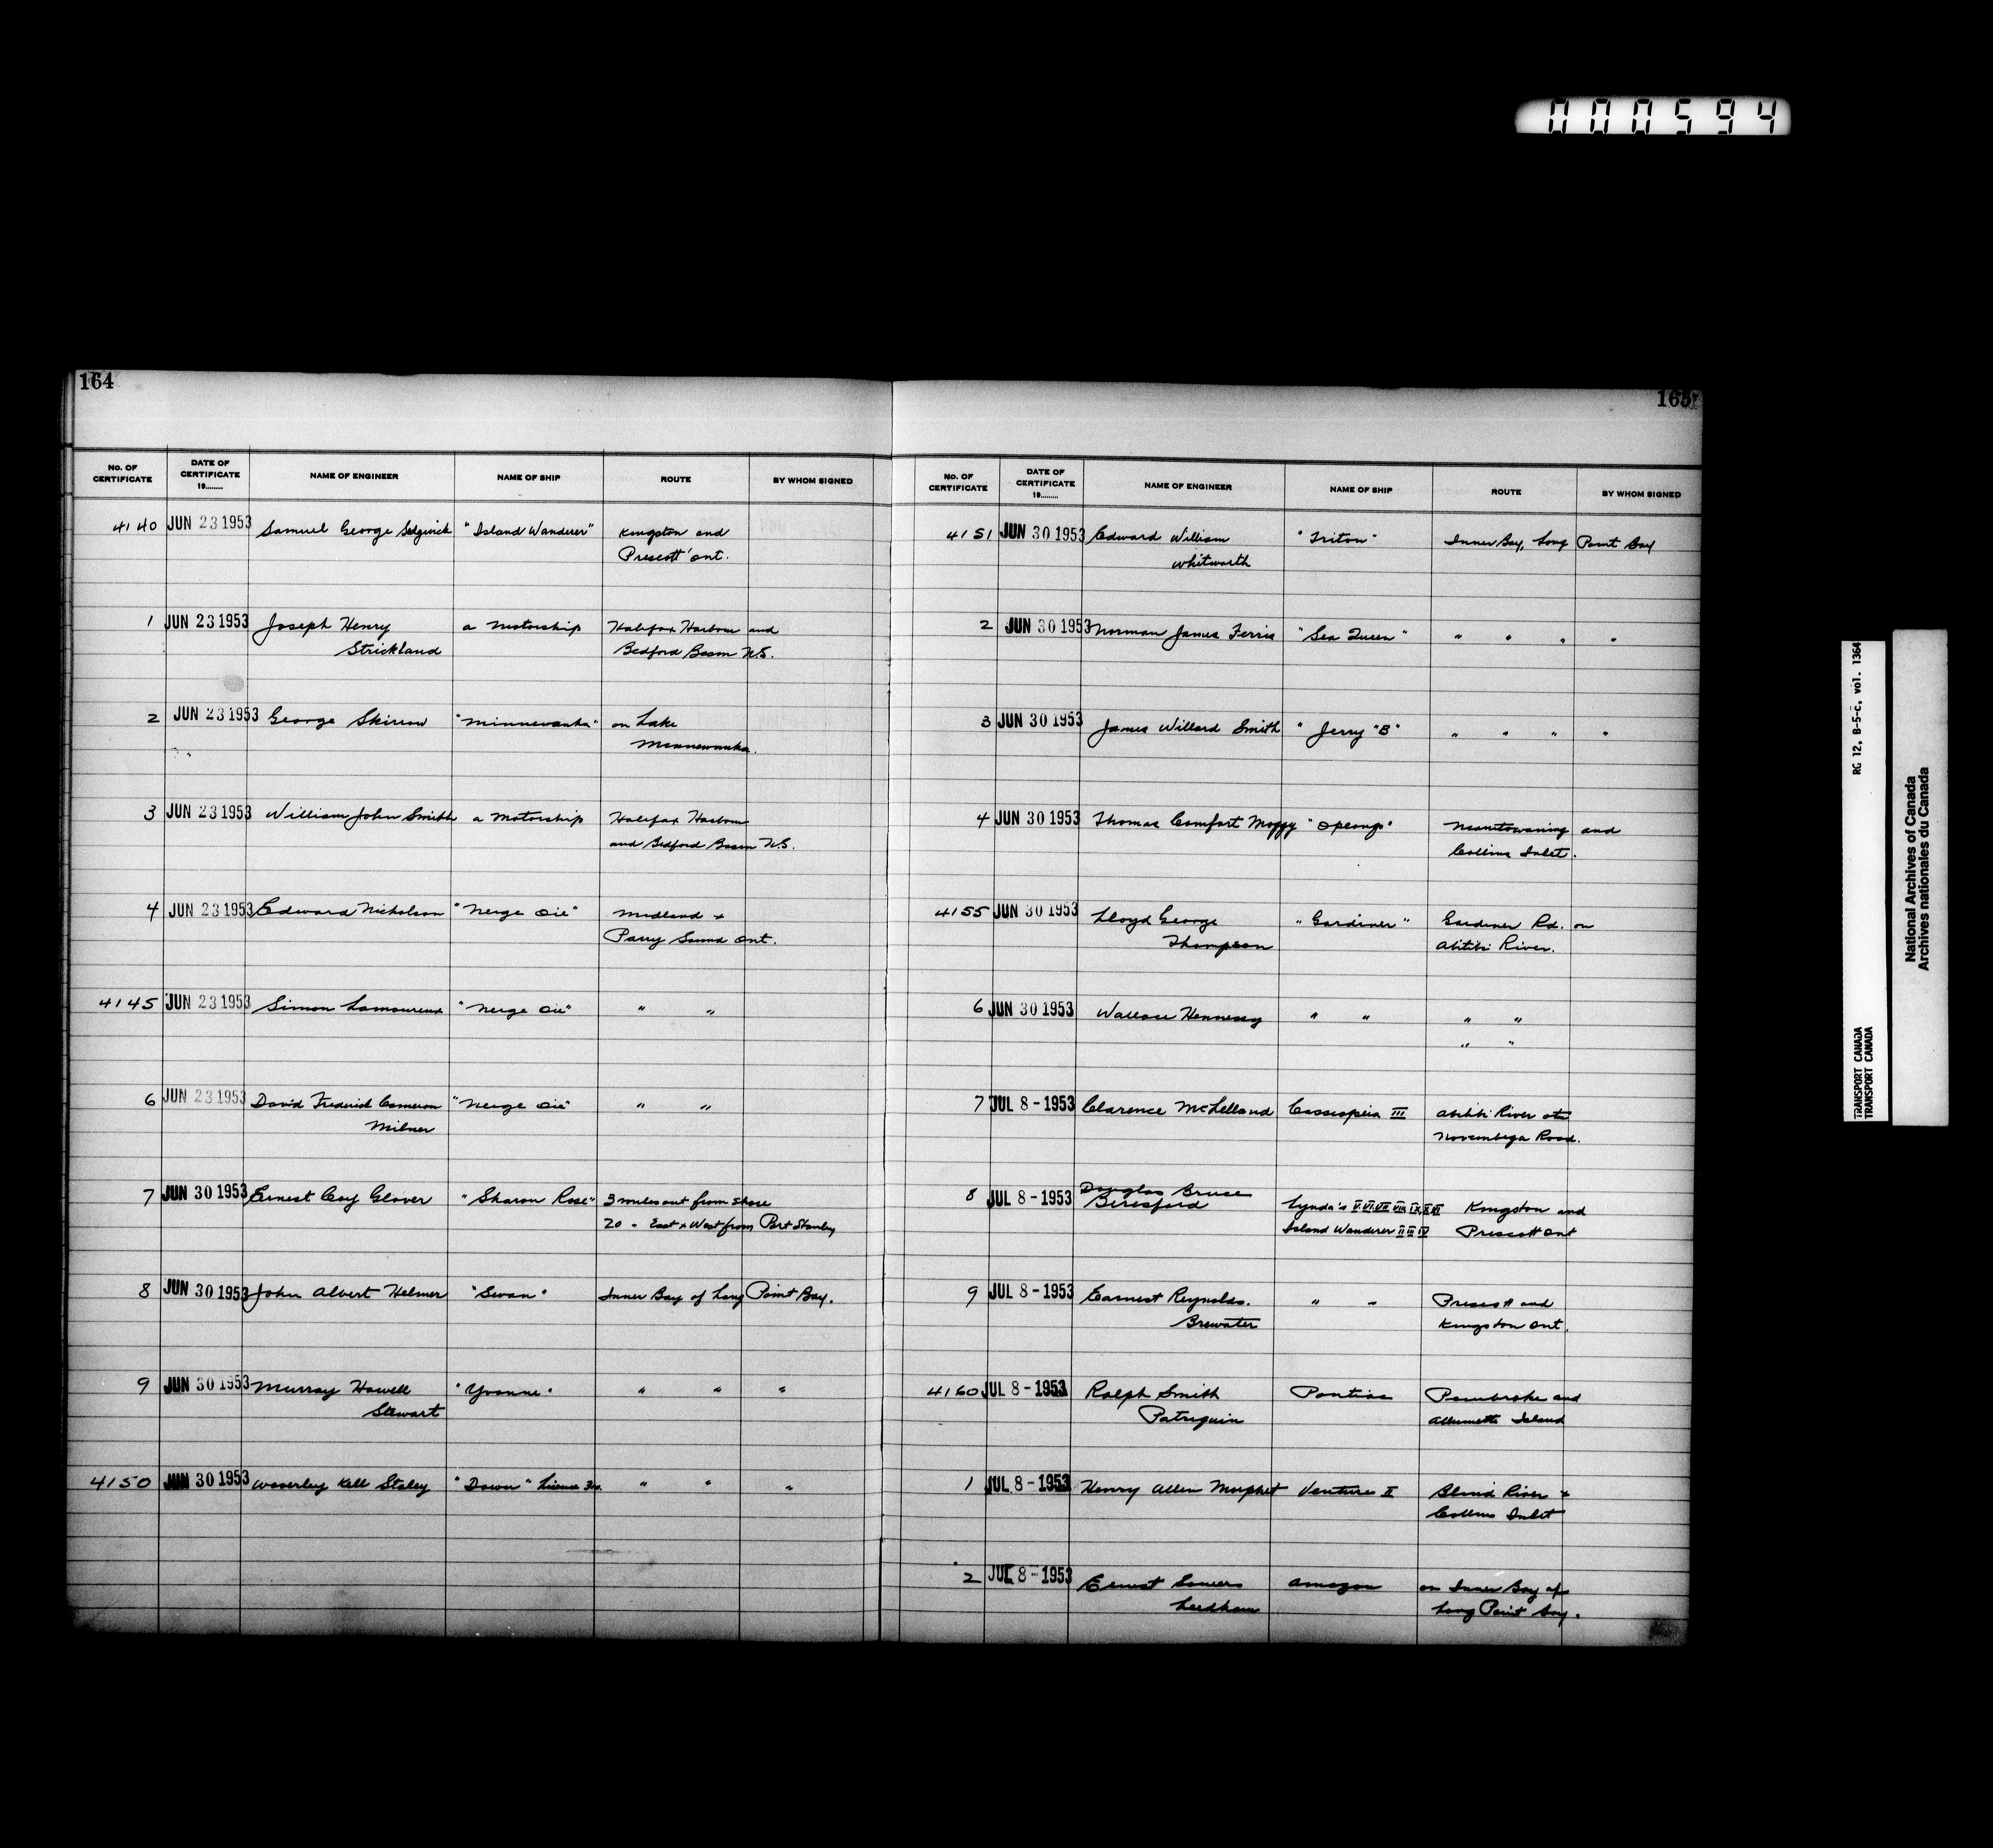 000594
164
No. OF CERTIFICATE DATE OF CERTIFICATE 19........ NAME OF ENGINEER NAME OF SHIP ROUTE BY WHOM SIGNED
4140 JUN 23 1953 Samuel George Sedgwick "Island Wanderer" Kingston and
Prescott Ont.
1 JUN 23 1953 Joseph Henry a Motorship Halifax Harbour and
Strickland Bedford Basin N.S.
2 JUN 23 1953 George Skirrow "Minnewanka" on Lake
" Minnewanka.
3 JUN 23 1953 William John Smith a Motorship Halifax Harbour
and Bedford Basin N.S.
4 JUN 23 1953 Edward Nicholson "Neige Oie" Midland +
Parry Sound Ont.
4145 JUN 23 1953 Simon Lamoureux "Neige Oie" " "
6 JUN 23 1953 David Frederick Cameron "Neige Oie" " "
Milner
7 JUN 30 1953 Ernest Coy Glover "Sharon Rose" 3 miles out from shore
20 " East + West from Port Stanley
8 JUN 30 1953 John Albert Helmer "Swan" Inner Bay of Long Point Bay.
9 JUN 30 1953 Murray Howell "Yvonne" " " "
Stewart
4150 JUN 30 1953 Waverley Kell Staley "Dawn" " " "
165
No. OF CERTIFICATE DATE OF CERTIFICATE 19........ NAME OF ENGINEER NAME OF SHIP ROUTE BY WHOM SIGNED
4151 JUN 30 1953 Edward William "Triton" Inner Bay, Long Point Bay
Whitworth
2 JUN 30 1953 Norman James Ferris "Sea Queen" " " " "
3 JUN 30 1953 James Willard Smith "Jerry "B" " " " "
4 JUN 30 1953 Thomas Comfort "Opeongo" Manitowaning and
Collins Inlet.
4155 JUN 30 1953 Lloyd George "Gardiner" Gardiner Rd. on
Thompson Abitibi River.
6 JUN 30 1953 Wallace Hennessy " " " "
" "
7 JUL 8 - 1953 Clarence McLelland Cassiopeia III Abitibi River at
Road.
8 JUL 8 - 1953 Douglas Bruce
Beresford Lynda's V.VI.VII.VIII.IX.X.XI Kingston and
Island Wanderer II III IV Prescott Ont
9 JUL 8 - 1953 Earnest Reynolds. " " Prescott and
Brewster Kingston Ont.
4160 JUL 8 - 1953 Ralph Smith Pontiac Pembroke and
Patriquin Allumette Island
1 JUL 8 - 1953 Henry Allen Venture II Blind River +
Collins Inlet
2 JUL 8 - 1953 Ernest Somers Amazon on Inner Bay of
Leedham Long Point Bay.
RG 12, B-5-C, vol. 1364
TRANSPORT CANADA
TRANSPORT CANADA
National Archives of Canada
Archives nationales du Canada